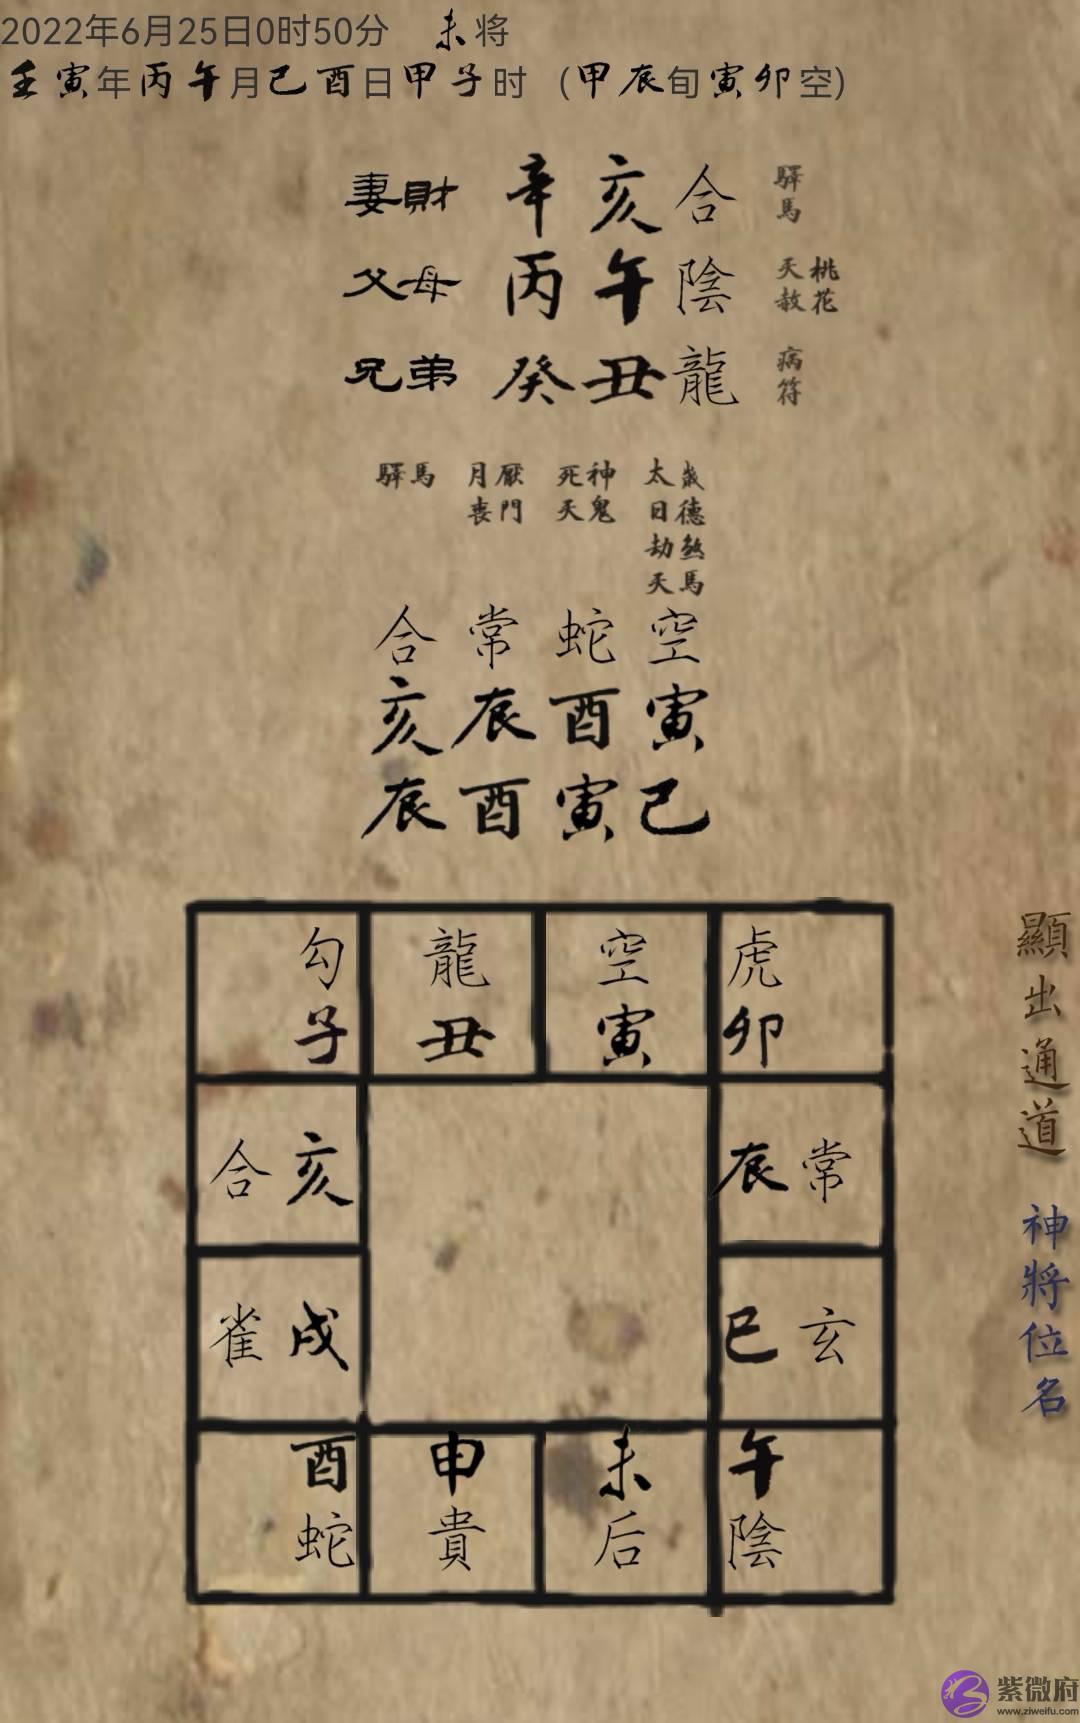 2022年6月25日0时50分 未将
壬寅年丙午月己酉日甲子时 (甲辰旬寅卯空)
妻財 辛亥合 驿馬
父母 丙午陰 天赦 桃花
兄弟 癸丑龍 病符
驛馬 月厭 死神 太歲
喪門 天鬼 日德
劫煞
天馬
合常蛇空
亥辰酉寅
辰酉寅己
勾龍空虎
子丑寅卯
合亥 辰常
雀戌 巳玄
酉申未午
蛇貴后陰
顯出通道
神將位名
紫微府
www.ziweifu.com